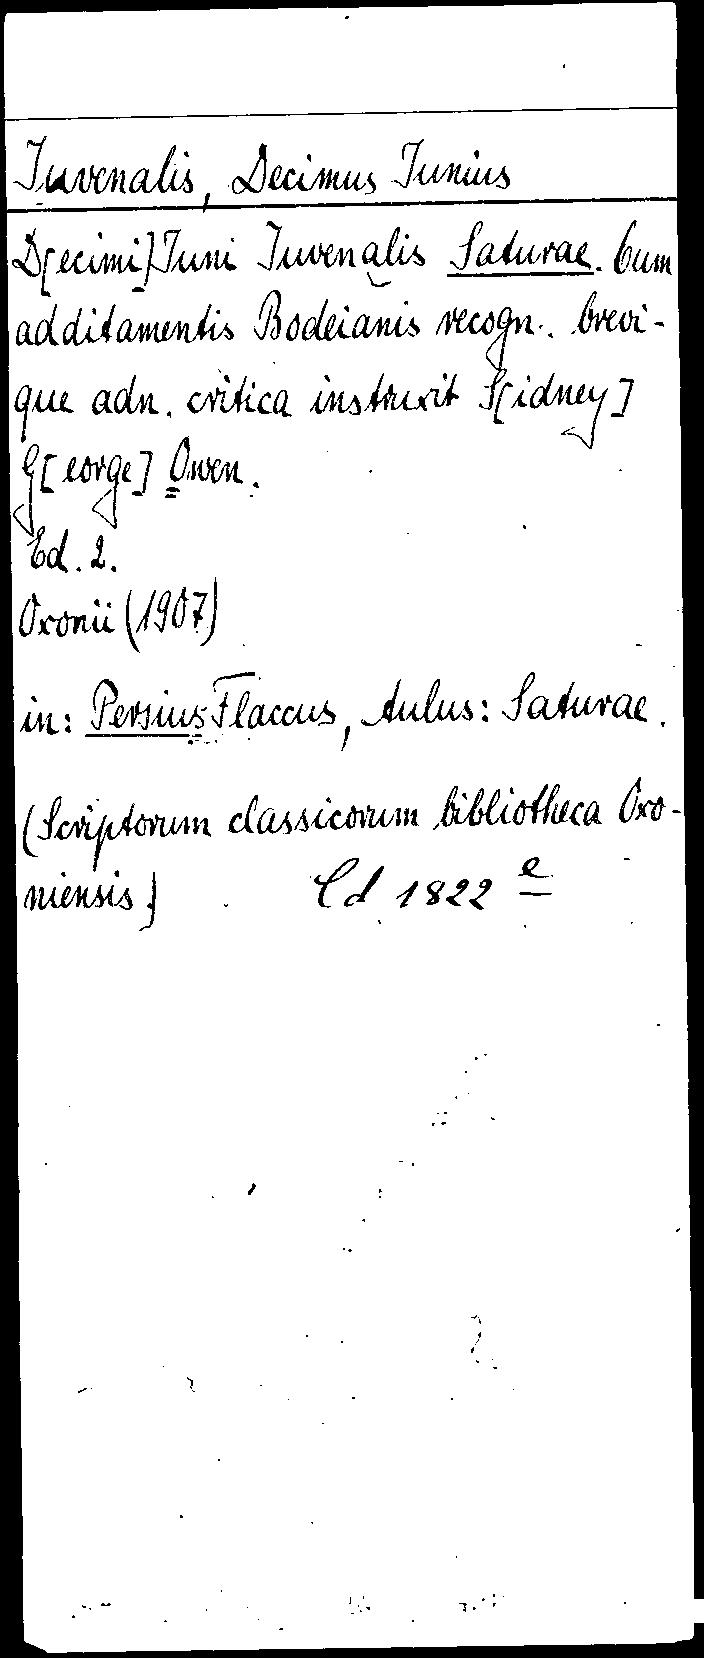 Juvenalis, Decimus Junius
D[ecimi] Juni Juvenalis Saturae. Cum
additamentis Bodeianis recogn. brevi-
que adn. critica instruxit S[idney]
G[eorge] Owen.
Ed. 2.
Oxonii (1907)
in: Persius Flaccus, Aulus: Saturae.
(Scriptorum classicorum bibliotheca Oxo-
niensis)
Cd 1822 e